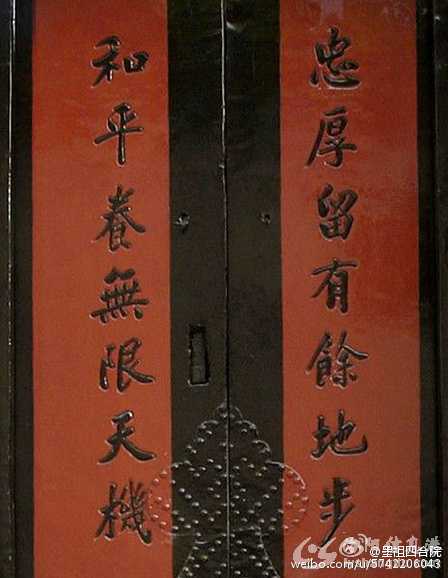 忠厚留有餘地步
和平養無限天機
@皇祖四合院
weibo.com/u/5742206043